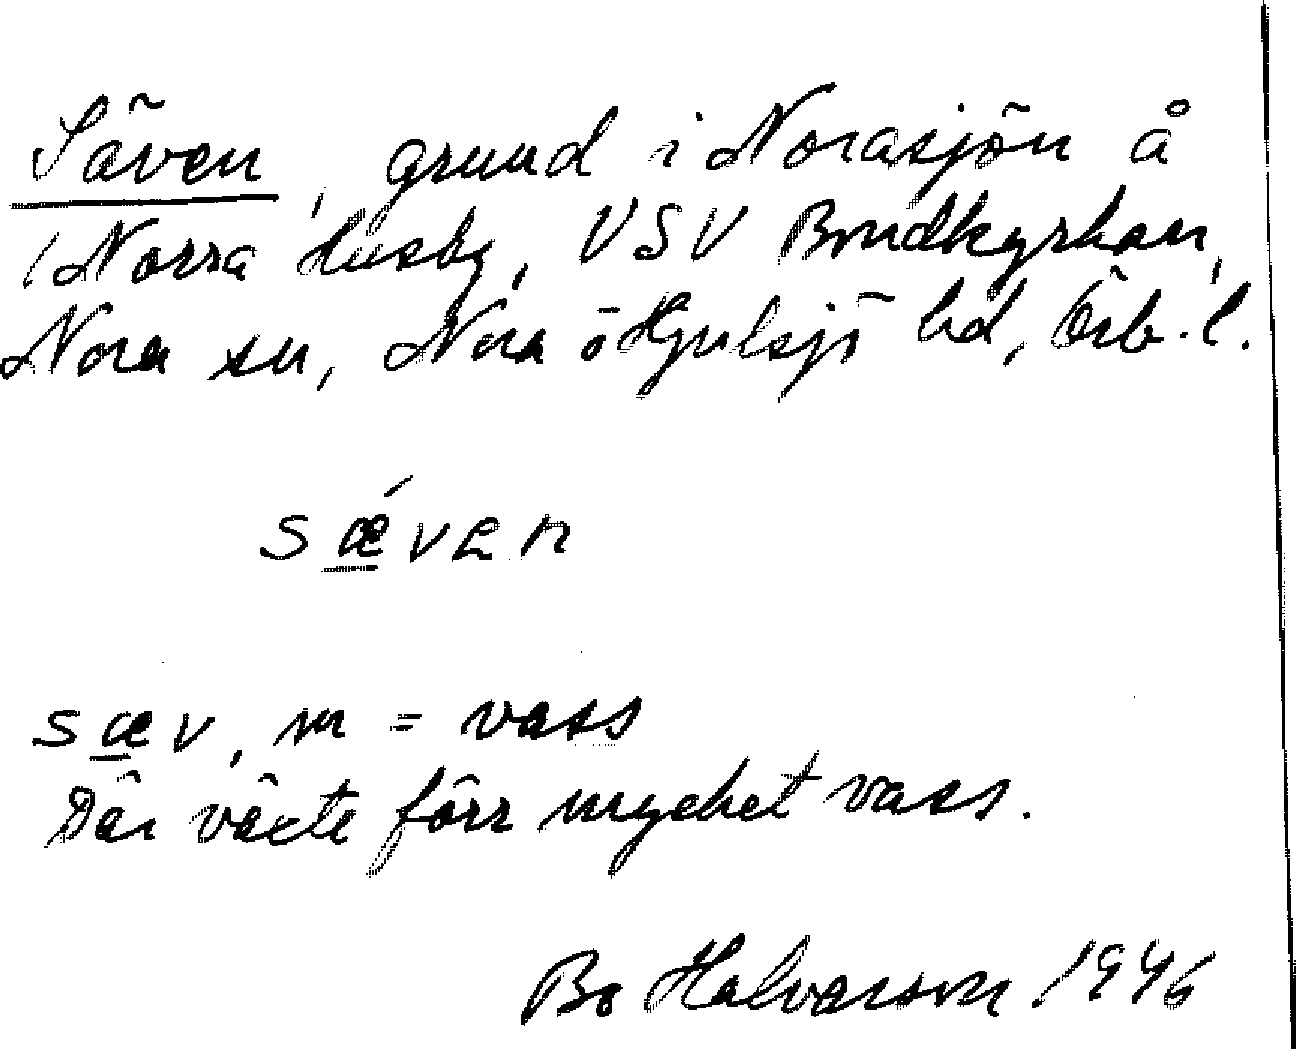 Säven, grund i Norasjön å
i Norra Husby, VSV Bondkyrkan,
Nora sn, Nora ö Hjulsjö bd, Örb. l.
sǽven
sæv, m = vass
Där växte förr mycket vass.
Bo Halvarson 1946